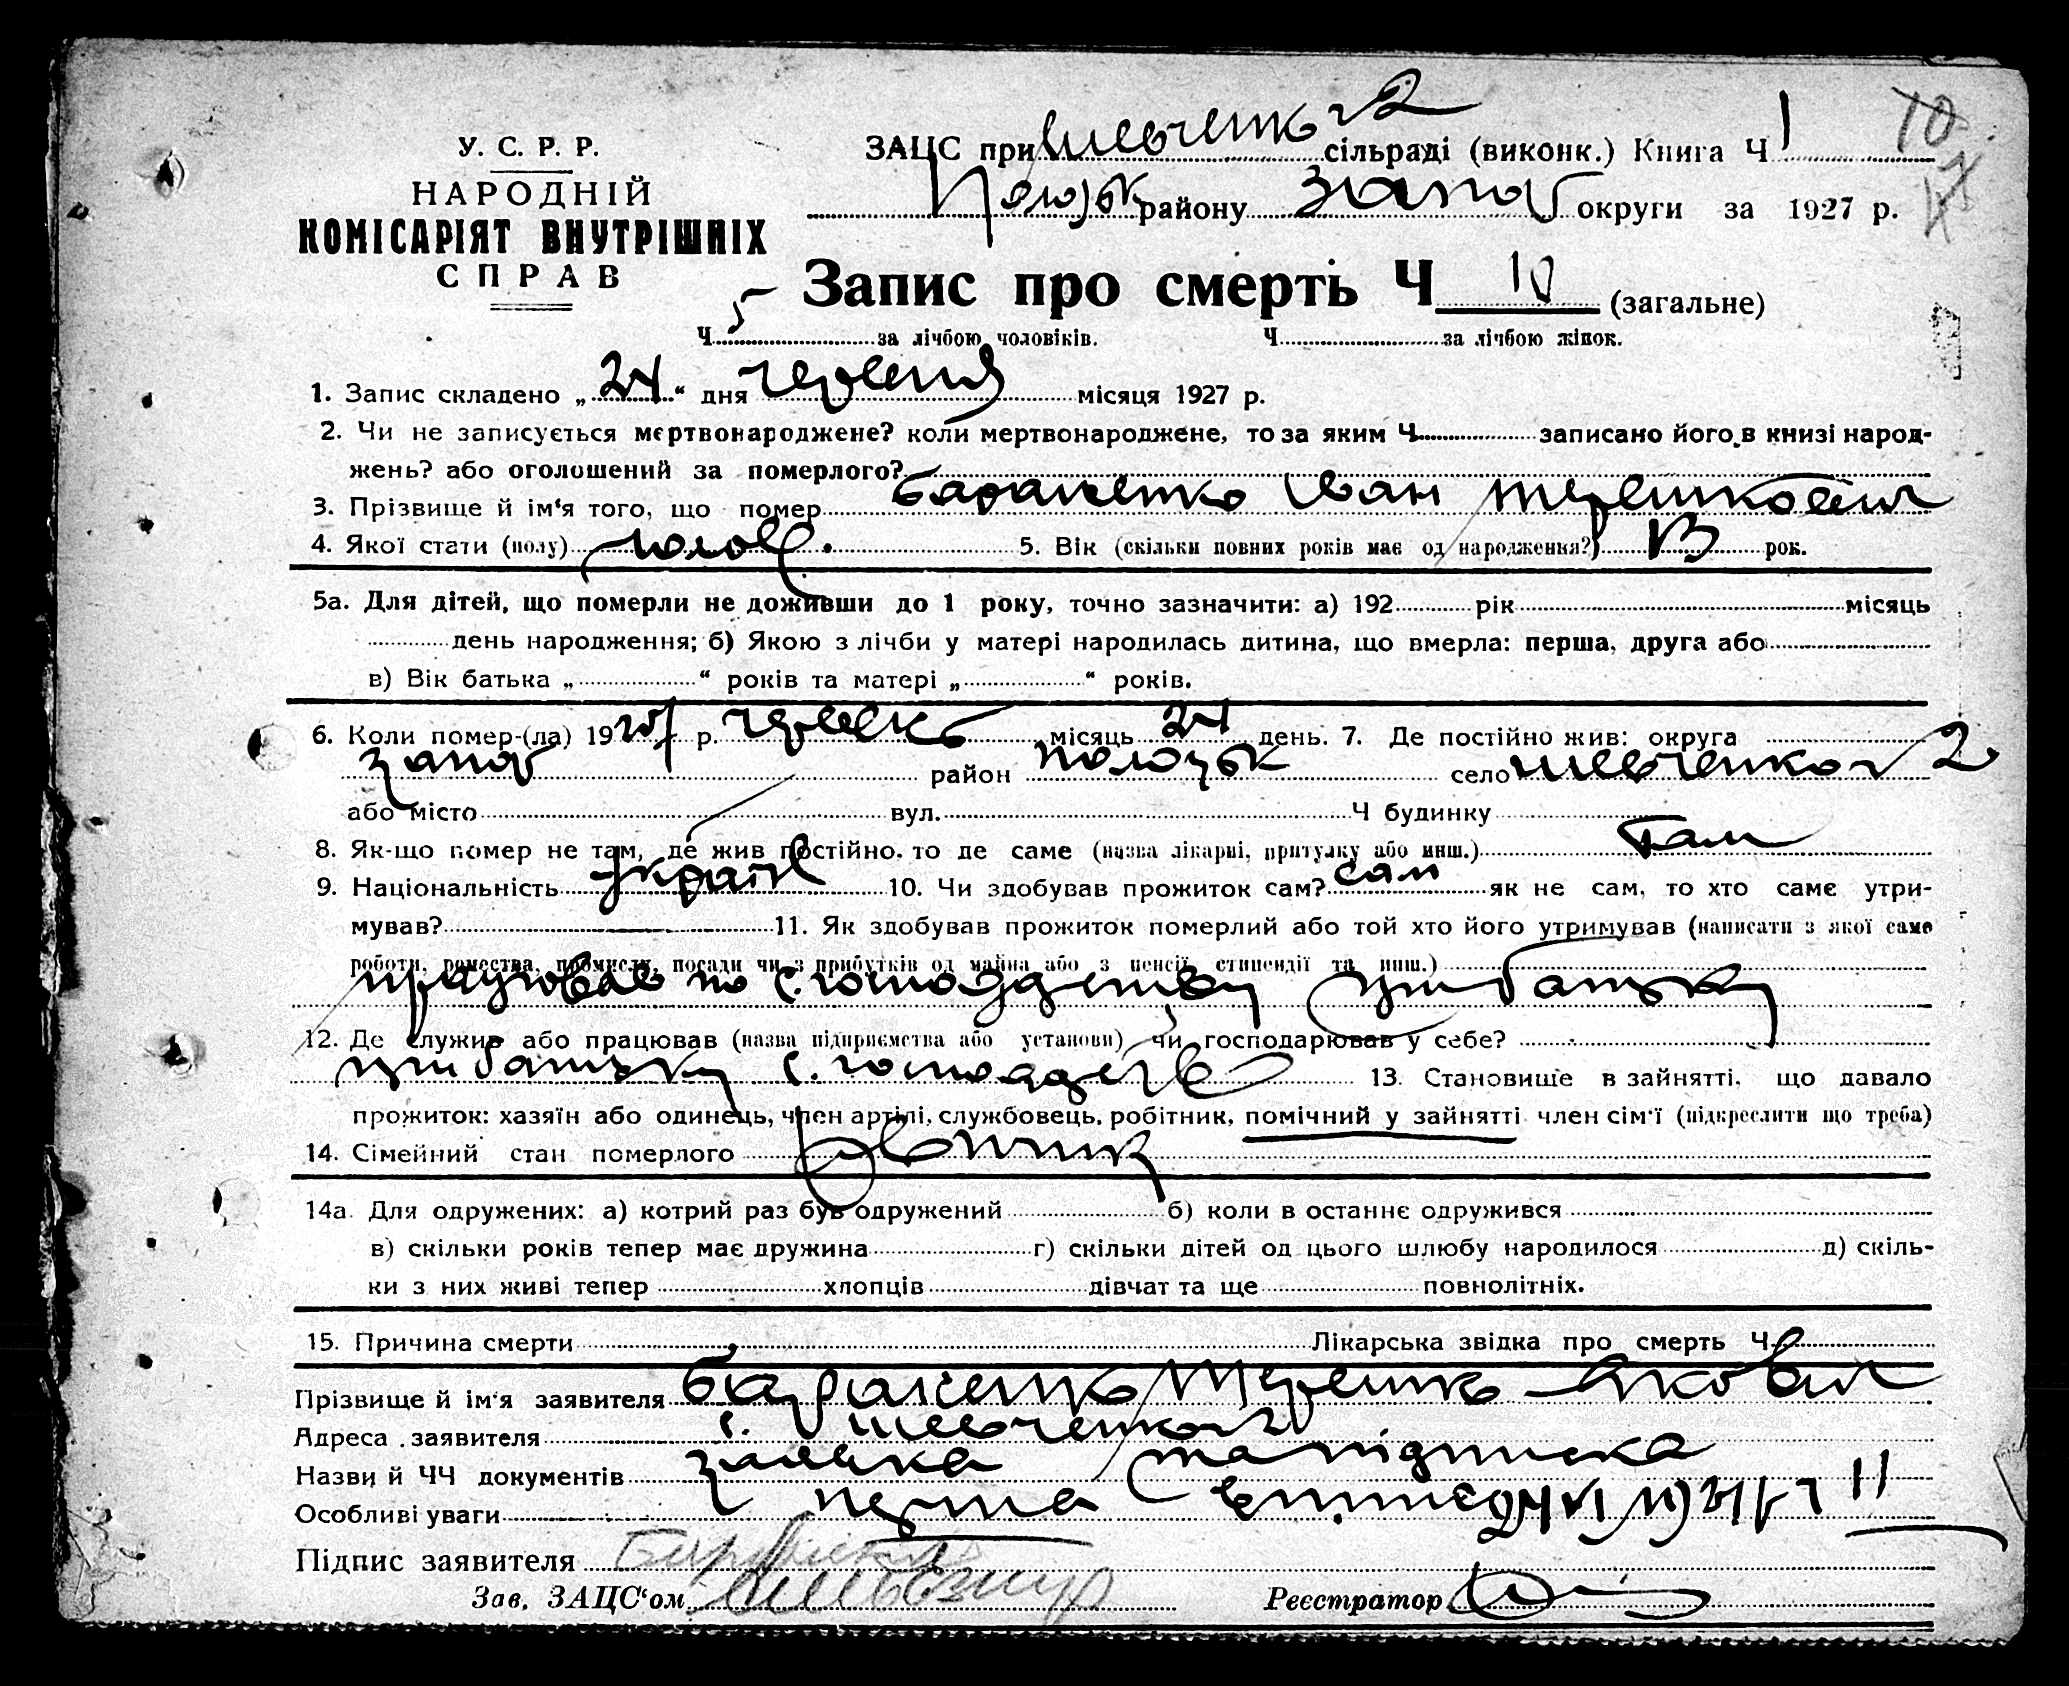 У. С. Р. Р.
НАРОДНІЙ
КОМІСАРІЯТ ВНУТРІШНІХ
СПРАВ
10
ЗАЦС при Шевченко №2 сільраді (виконк.) Книга Ч 1
Пологівськ району Запоб округи за 1927 р.
Запис про смерть Ч 10 (загальне)
Ч 5 за лічбою чоловіків. Ч за лічбою жінок.
1. Запис складено „24“ дня червня місяця 1927 р.
2. Чи не записується мертвонароджене? коли мертвонароджене, то за яким Ч записано його в книзі народ-
жень? або оголошений за померлого?
3. Прізвище й ім'я того, що помер Бараненко Іван Терешкович
4. Якої стати (полу) чолов. 5. Вік (скільки повних років має од народження?) 13 рок.
5а. Для дітей, що померли не доживши до 1 року, точно зазначити: а) 192 рік місяць
день народження; б) Якою з лічби у матері народилась дитина, що вмерла: перша, друга або
в) Вік батька „ “ років та матері „ “ років.
6. Коли помер-(ла) 1927 р. червень місяць 24 день. 7. Де постійно жив: округа
Запоб район Полозськ село Шевченко №2
або місто вул. Ч будинку
8. Як-що помер не там, де жив постійно, то де саме (назва лікарні, притулку або инш.) там
9. Національність україн 10. Чи здобував прожиток сам? сам як не сам, то хто саме утри-
мував? 11. Як здобував прожиток померлий або той хто його утримував (написати з якої саме
роботи, ремества, промислу, посади чи з прибутків од майна або з пенсії, стипендії та инш.)
працював по с. господдарству при батьку
12. Де служив або працював (назва підприємства або установи) чи господарював у себе?
при батьку с. господарств 13. Становище в зайнятті, що давало
прожиток: хазяїн або одинець, член артілі, службовець, робітник, помічний у зайнятті член сім'ї (підкреслити що треба)
14. Сімейний стан померлого
14а. Для одружених: а) котрий раз був одружений б) коли в останнє одружився
в) скільки років тепер має дружина г) скільки дітей од цього шлюбу народилося д) скіль-
ки з них живі тепер хлопців дівчат та ще повнолітніх.
15. Причина смерти Лікарська звідка про смерть Ч
Прізвище й ім'я заявителя Бараненко Терешко Якович
Адреса заявителя с. Шевченко №2
Назви й ЧЧ документів заявка та підписка
Особливі уваги
Підпис заявителя
Зав. ЗАЦС'ом Реєстратор